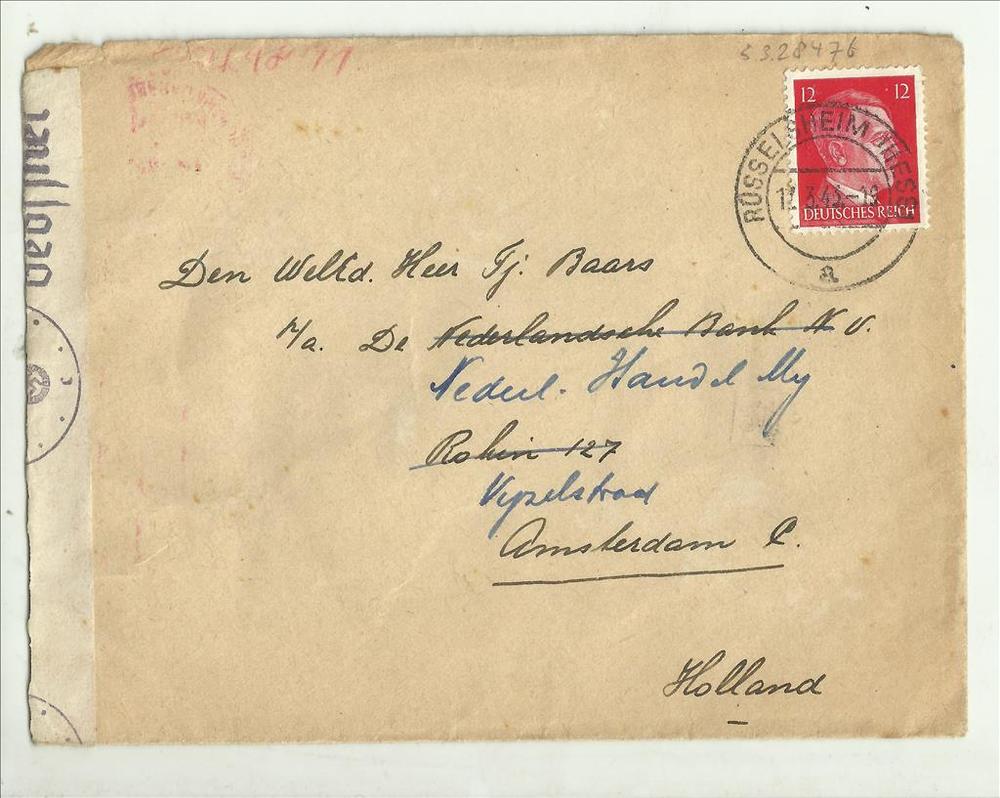 53.28476
12 12
DEUTSCHES REICH
RÜSSELSHEIM (HESS)
a
Geöffnet
Den WelEd. Heer Tj. Baars
p/a. De Nederlandsche Bank N.V.
Nederl. Handel My
Rokin 127
Vijzelstraat
Amsterdam C.
Holland